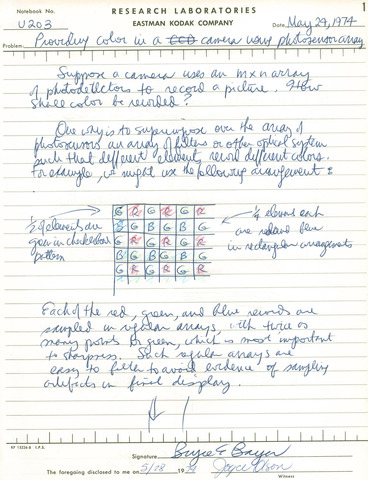 Notebook No. RESEARCH LABORATORIES 1
U203 EASTMAN KODAK COMPANY Date May 29, 1974
Problem: Providing color in a CCD camera using photosensor array
Suppose a camera uses an m x n array
of photodetectors to record a picture. How
shall color be recorded?
One way is to superimpose over the array of
photosensors an array of filters or other optical system
such that different elements record different colors.
For example, we might use the following arrangement:
G R G R G R
B G B G B G
G R G R G R
B G B G B G
G R G R G R
½ of elements are
green in checkerboard
pattern
¼ elements each
are red and blue
in rectangular arrangements
Each of the red, green, and blue records are
sampled in regular arrays, with twice as
many points to green, which is most important
to sharpness. Such regular arrays are
easy to filter to avoid evidence of sampling
artifacts in final display.
KP 13226-B I.P.S.
Signature Bryce E Bayer
The foregoing disclosed to me on 5/28 19 Joyce
Witness